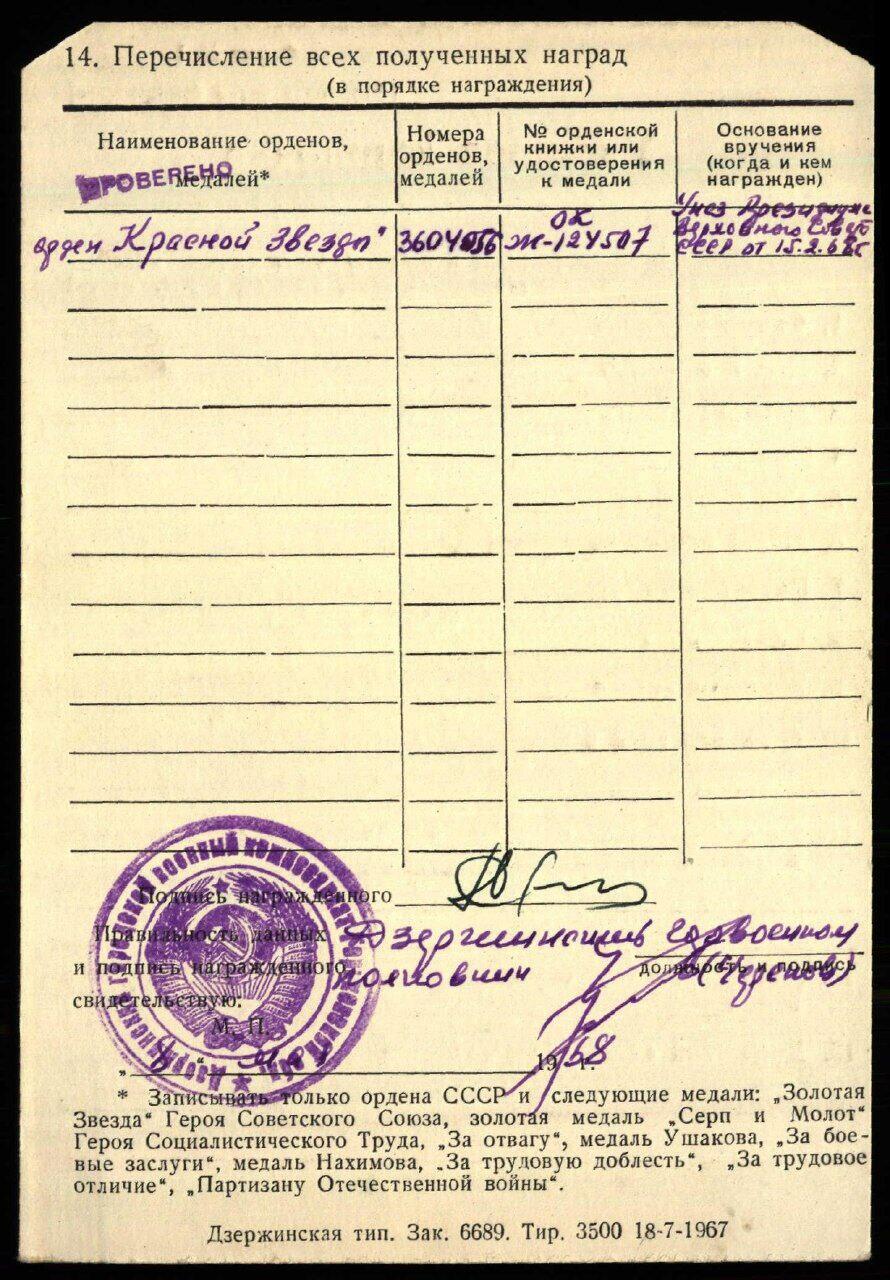 14. Перечисление всех полученных наград
(в порядке награждения)
Наименование орденов,
медалей*
ПРОВЕРЕНО
Номера
орденов,
медалей
№ орденской
книжки или
удостоверения
к медали
Основание
вручения
(когда и кем
награжден)
орден "Красной Звезды"
3604056
ОК
Ж-124507
Указ Президиума
Верховного Совета
СССР от 15.2.68г
Подпись награжденного
Правильность данных
и подпись награжденного
свидетельствую:
М. П.
Дзержинский горвоенком
полковник
должность и подпись
1968 г.
* Записывать только ордена СССР и следующие медали: „Золотая
Звезда“ Героя Советского Союза, золотая медаль „Серп и Молот“
Героя Социалистического Труда, „За отвагу“, медаль Ушакова, „За бое-
вые заслуги“, медаль Нахимова, „За трудовую доблесть“, „За трудовое
отличие“, „Партизану Отечественной войны“.
Дзержинская тип. Зак. 6689. Тир. 3500 18-7-1967